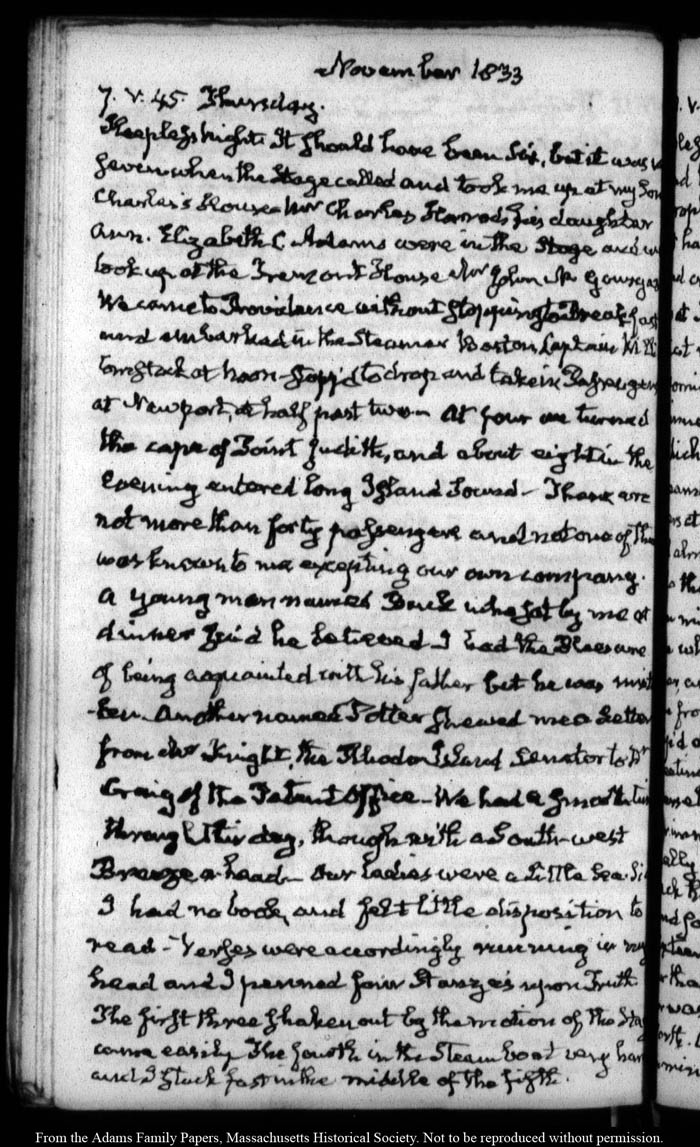 November 1833
7. V:45. Thursday.
Sleepless night. It should have been Six, but it was
seven when the Stage called and took me up at my Son
Charles's House. Mr Charles his daughter
Ann. Elizabeth C. Adams were in the Stage and we
took up at the Tremont House Mr John M Gourgas
We came to Providence without stopping to Breakfast
and embarked in the Steamer Boston, Captain
at noon— Stopp'd to drop and take in Passengers
at Newport, at half past two— At four we turned
the cape of Point Judith, and about eight in the
Evening entered Long Island Sound— There are
not more than forty passengers and not one of
was known to me excepting our own company.
A young man named Buck who sat by me at
dinner said he believed I had the Pleasure
of being acquainted with his father but he was
Another named Potter shewed me a Letter
from Mr Knight, the Rhode Island Senator to Dr
Craig of the Patent Office— We had a smooth
through the day, though with a South-west
Breeze a-head— Our Ladies were a little Sea
I had no book, and felt little disposition to
read— Verses were accordingly running in my
head and I penned four Stanza's upon Truth
The first three shaken out by the motion of the Stage
came easily The fourth in the Steam boat very hard
and I stuck fast in the middle of the fifth.
From the Adams Family Papers, Massachusetts Historical Society. Not to be reproduced without permission.